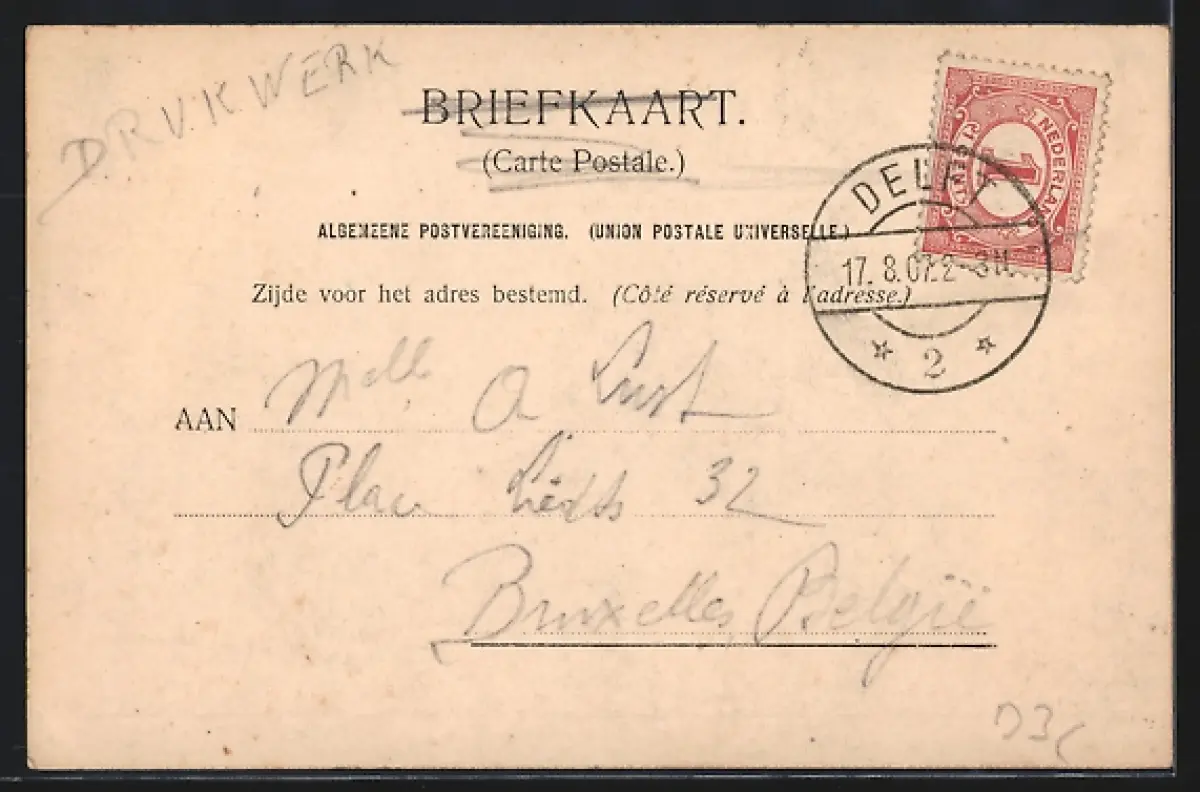 DRUKWERK
BRIEFKAART.
(Carte Postale.)
ALGEMEENE POSTVEREENIGING. (UNION POSTALE UNIVERSELLE.)
Zijde voor het adres bestemd. (Côté réservé à l'adresse.)
NEDERLAND
1
CENT
DELFT
17. 8. 07. 2-3N.
2
AAN Melle A Lust
Place Liedts 32
Bruxelles België